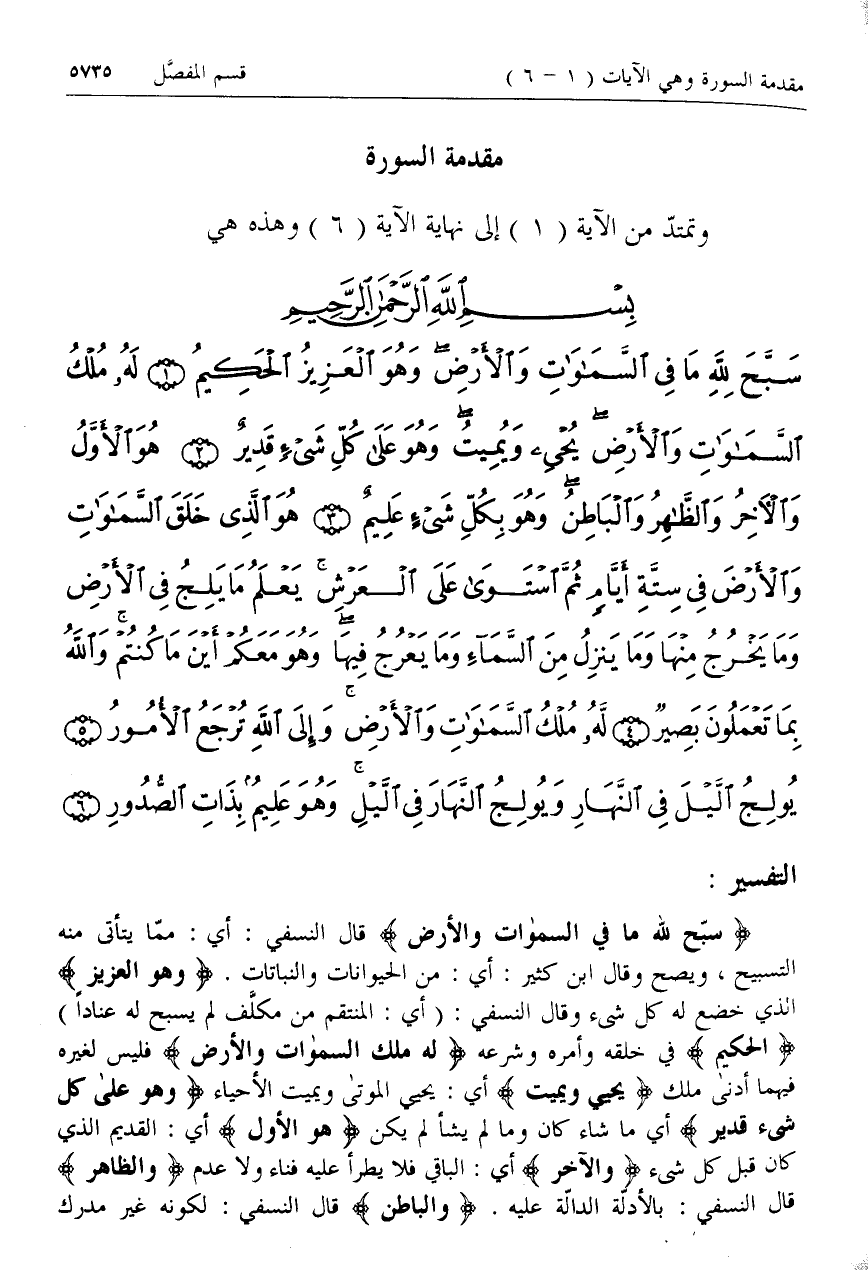 مقدمة السورة وهي الآيات ( ١ - ٦ ) قسم المفصَّل ٥٧٣٥
مقدمة السورة
وتمتدّ من الآية ( ١ ) إلى نهاية الآية ( ٦ ) وهذه هي
بِسْمِ ٱللَّهِ ٱلرَّحْمَٰنِ ٱلرَّحِيمِ
سَبَّحَ لِلَّهِ مَا فِى ٱلسَّمَٰوَٰتِ وَٱلْأَرْضِۖ وَهُوَ ٱلْعَزِيزُ ٱلْحَكِيمُ ۝١ لَهُۥ مُلْكُ
ٱلسَّمَٰوَٰتِ وَٱلْأَرْضِۖ يُحْىِۦ وَيُمِيتُۖ وَهُوَ عَلَىٰ كُلِّ شَىْءٍ قَدِيرٌ ۝٢ هُوَ ٱلْأَوَّلُ
وَٱلْءَاخِرُ وَٱلظَّٰهِرُ وَٱلْبَاطِنُۖ وَهُوَ بِكُلِّ شَىْءٍ عَلِيمٌ ۝٣ هُوَ ٱلَّذِى خَلَقَ ٱلسَّمَٰوَٰتِ
وَٱلْأَرْضَ فِى سِتَّةِ أَيَّامٍ ثُمَّ ٱسْتَوَىٰ عَلَى ٱلْعَرْشِۚ يَعْلَمُ مَا يَلِجُ فِى ٱلْأَرْضِ
وَمَا يَخْرُجُ مِنْهَا وَمَا يَنزِلُ مِنَ ٱلسَّمَآءِ وَمَا يَعْرُجُ فِيهَاۖ وَهُوَ مَعَكُمْ أَيْنَ مَا كُنتُمْۚ وَٱللَّهُ
بِمَا تَعْمَلُونَ بَصِيرٌ ۝٤ لَّهُۥ مُلْكُ ٱلسَّمَٰوَٰتِ وَٱلْأَرْضِۚ وَإِلَى ٱللَّهِ تُرْجَعُ ٱلْأُمُورُ ۝٥
يُولِجُ ٱلَّيْلَ فِى ٱلنَّهَارِ وَيُولِجُ ٱلنَّهَارَ فِى ٱلَّيْلِۚ وَهُوَ عَلِيمٌۢ بِذَاتِ ٱلصُّدُورِ ۝٦
التفسير :
﴿ سبّح لله ما في السمٰوات والأرض ﴾ قال النسفي : أي : ممّا يتأتى منه
التسبيح ، ويصح وقال ابن كثير : أي : من الحيوانات والنباتات . ﴿ وهو العزيز ﴾
الذي خضع له كل شيء وقال النسفي : ( أي : المنتقم من مكلَّف لم يسبح له عناداً )
﴿ الحكيم ﴾ في خلقه وأمره وشرعه ﴿ له ملك السمٰوات والأرض ﴾ فليس لغيره
فيهما أدنىٰ ملك ﴿ يحيي ويميت ﴾ أي : يحيي الموتىٰ ويميت الأحياء ﴿ وهو علىٰ كل
شيء قدير ﴾ أي ما شاء كان وما لم يشأ لم يكن ﴿ هو الأول ﴾ أي : القديم الذي
كان قبل كل شيء ﴿ والآخر ﴾ أي : الباقي فلا يطرأ عليه فناء ولا عدم ﴿ والظاهر ﴾
قال النسفي : بالأدلّة الدالّة عليه . ﴿ والباطن ﴾ قال النسفي : لكونه غير مدرك